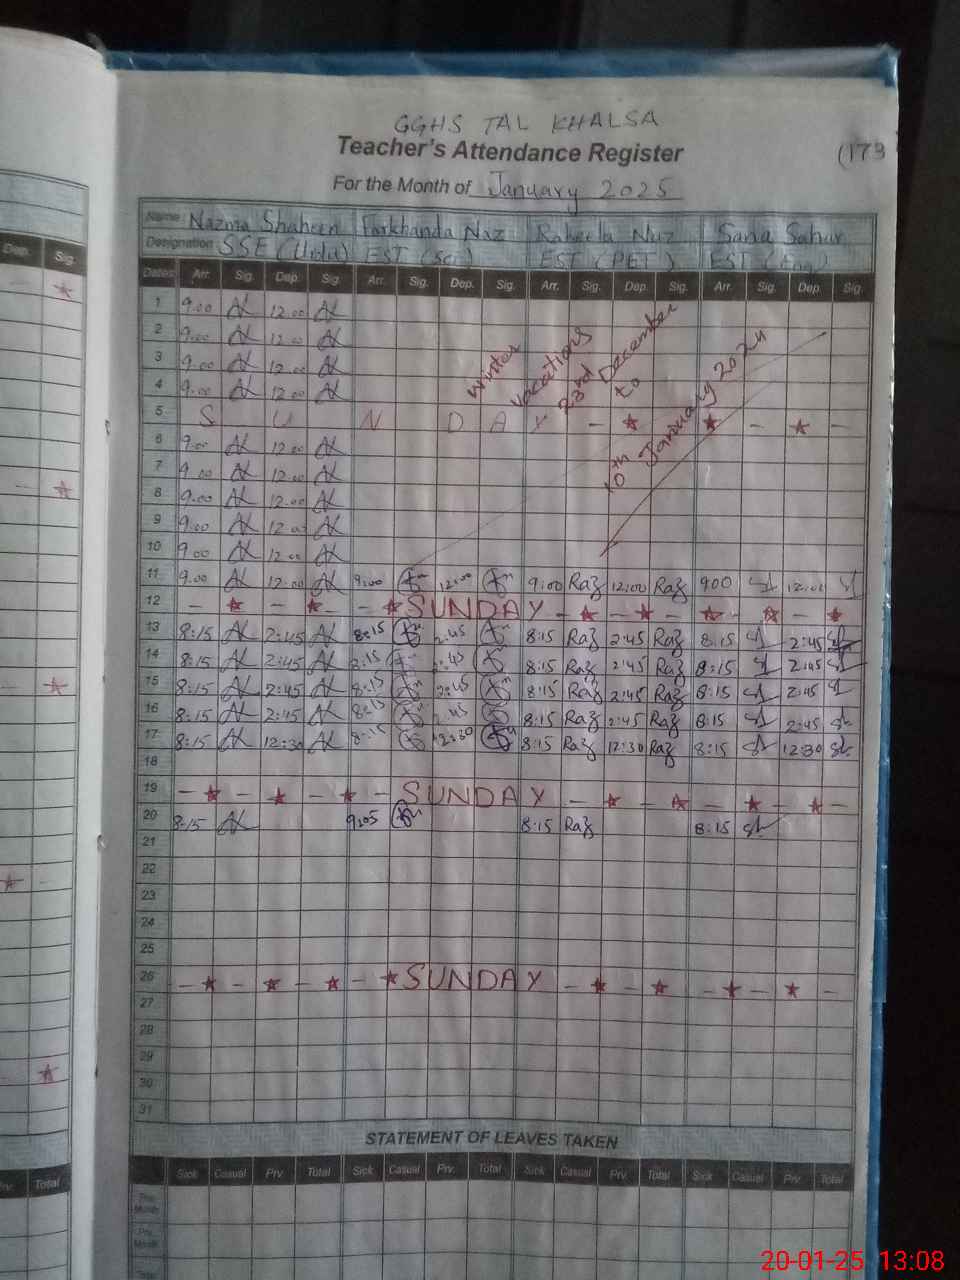 GGHS TAL KHALSA
Teacher's Attendance Register
(173
For the Month of January 2025
Name: Nazma Shaheen Farkhanda Naz Raheela Naz Sana Sahar
Designation: SSE (Urdu) EST (Sci) EST (PET) EST (Eng)
Dates Arr. Sig. Dep. Sig. Arr. Sig. Dep. Sig. Arr. Sig. Dep. Sig. Arr. Sig. Dep. Sig.
Winter vacations 23rd December to 10th January 2024
1 9.00 12.00
2 9.00 12.00
3 9.00 12.00
4 9.00 12.00
5 S U N D A Y
6 9.00 12.00
7 9.00 12.00
8 9.00 12.00
9 9.00 12.00
10 9.00 12.00
11 9.00 12.00 9:00 12:00 9:00 Raz 12:00 Raz 900 12:00
12 SUNDAY
13 8:15 2:45 8:15 2:45 8:15 Raz 2:45 Raz 8:15 2:45
14 8:15 2:45 8:15 2:45 8:15 Raz 2:45 Raz 8:15 2:45
15 8:15 2:45 8:15 2:45 8:15 Raz 2:45 Raz 8:15 2:45
16 8:15 2:45 8:15 2:45 8:15 Raz 2:45 Raz 8:15 2:45
17 8:15 12:30 8:15 12:30 8:15 Raz 12:30 Raz 8:15 12:30
18
19 SUNDAY
20 8:15 9:05 8:15 Raz 8:15
21
22
23
24
25
26 SUNDAY
27
28
29
30
31
STATEMENT OF LEAVES TAKEN
Sick Casual Prv. Total Sick Casual Prv. Total Sick Casual Prv. Total Sick Casual Prv. Total
Month
Prv. Month
Total
Dep. Sig.
Prv. Total
20-01-25 13:08